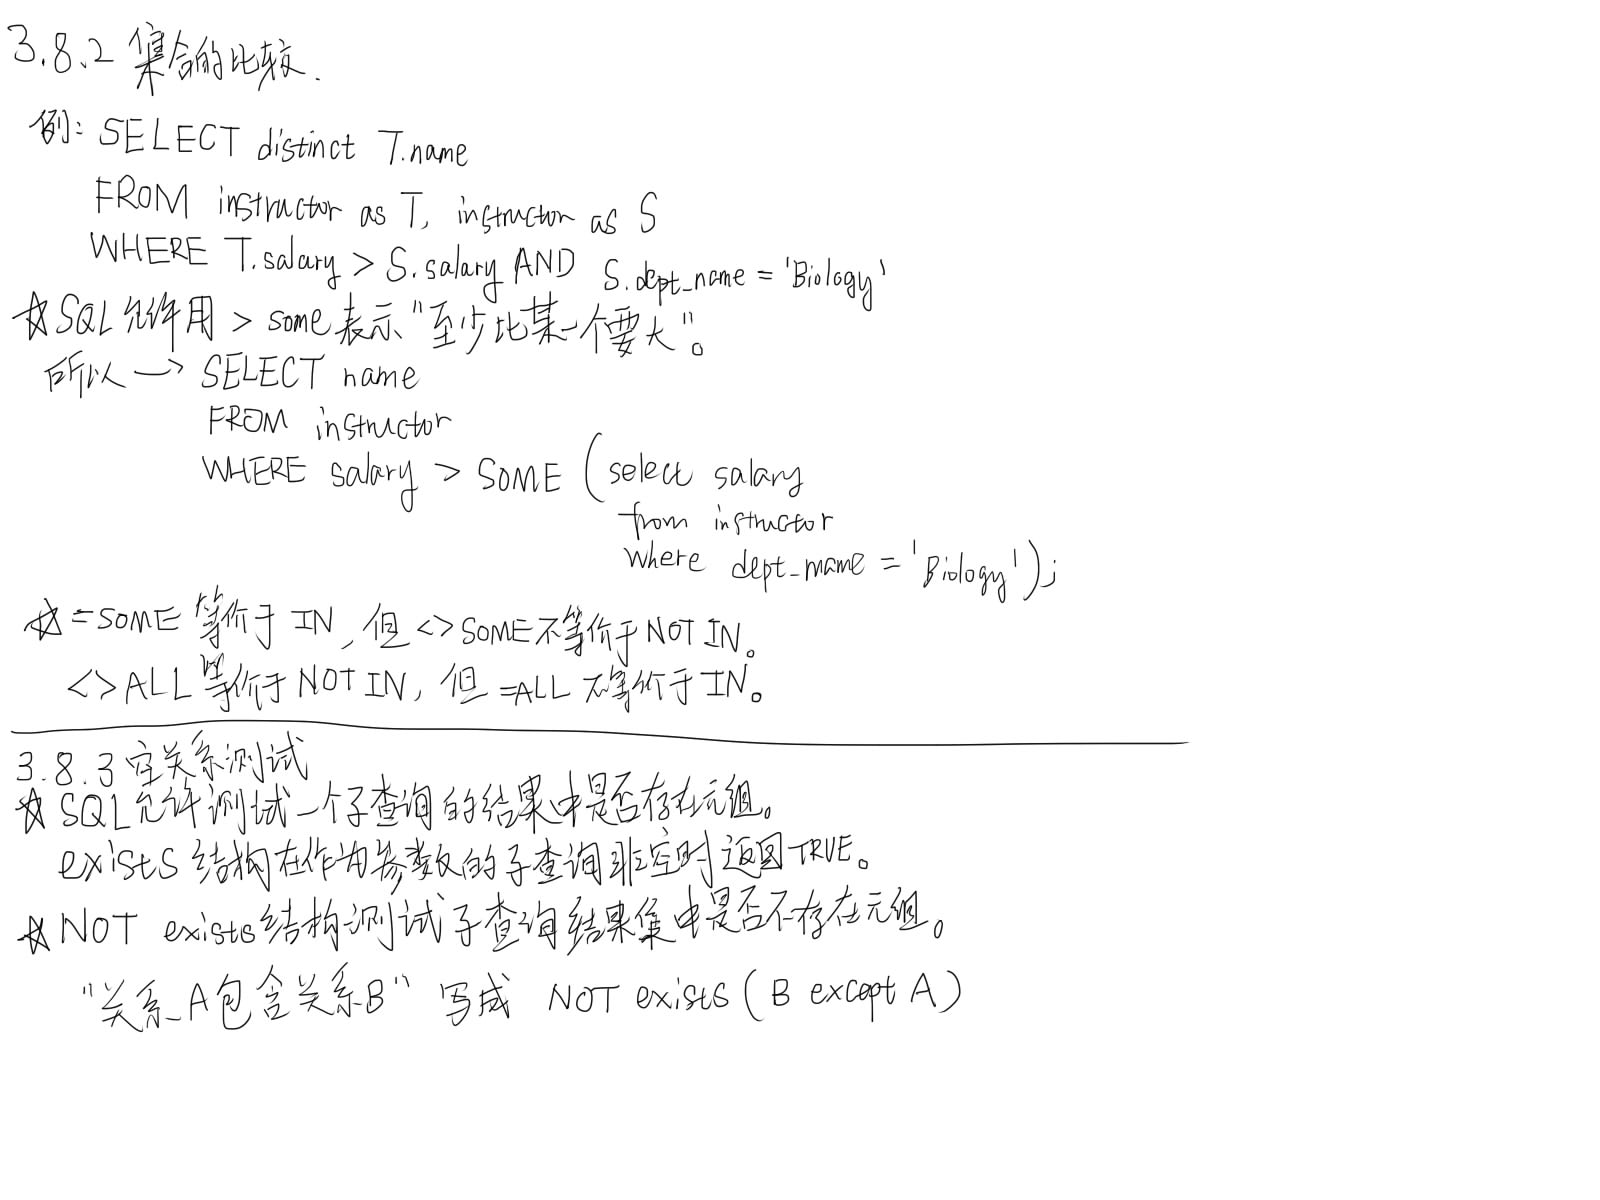 3.8.2 集合的比较.
例: SELECT distinct T.name
FROM instructor as T, instructor as S
WHERE T.salary > S.salary AND S.dept_name = 'Biology'
☆ SQL允许用 > some 表示 "至少比某一个要大"。
所以 → SELECT name
FROM instructor
WHERE salary > SOME (select salary
from instructor
where dept_name = 'Biology');
☆ =SOME 等价于 IN, 但 <> SOME 不等价于 NOT IN。
<> ALL 等价于 NOT IN, 但 =ALL 不等价于 IN。
3.8.3 空关系测试
☆ SQL允许测试一个子查询的结果中是否存在元组。
exists 结构在作为参数的子查询非空时返回TRUE。
☆ NOT exists 结构测试子查询结果集中是否不存在元组。
"关系A包含关系B" 写成 NOT exists (B except A)